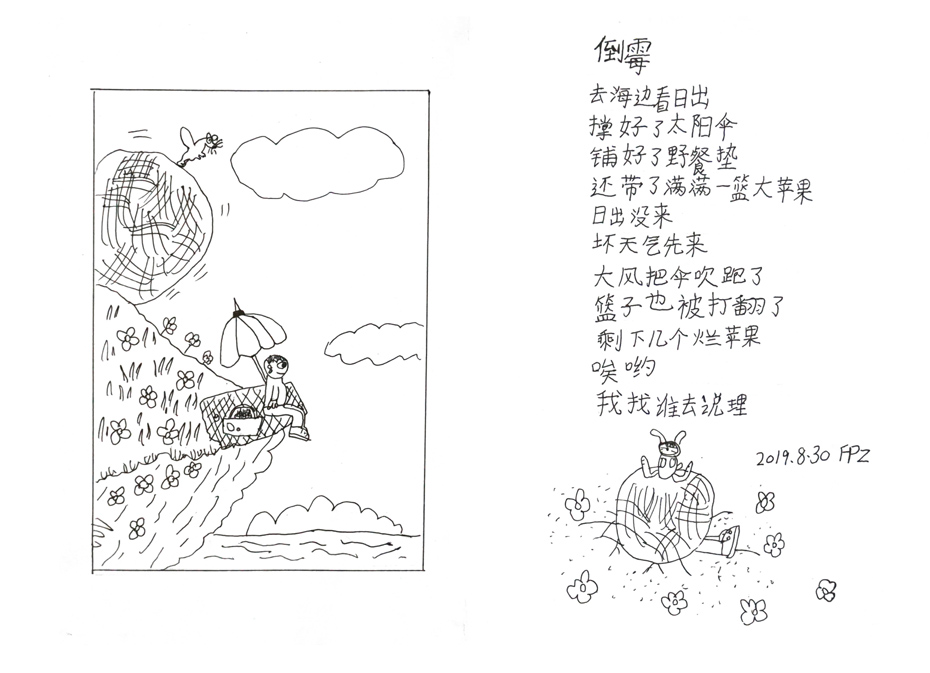 倒霉
去海边看日出
撑好了太阳伞
铺好了野餐垫
还带了满满一篮大苹果
日出没来
坏天气先来
大风把伞吹跑了
篮子也被打翻了
剩下几个烂苹果
唉哟
我找谁去说理
2019.8.30 FPZ